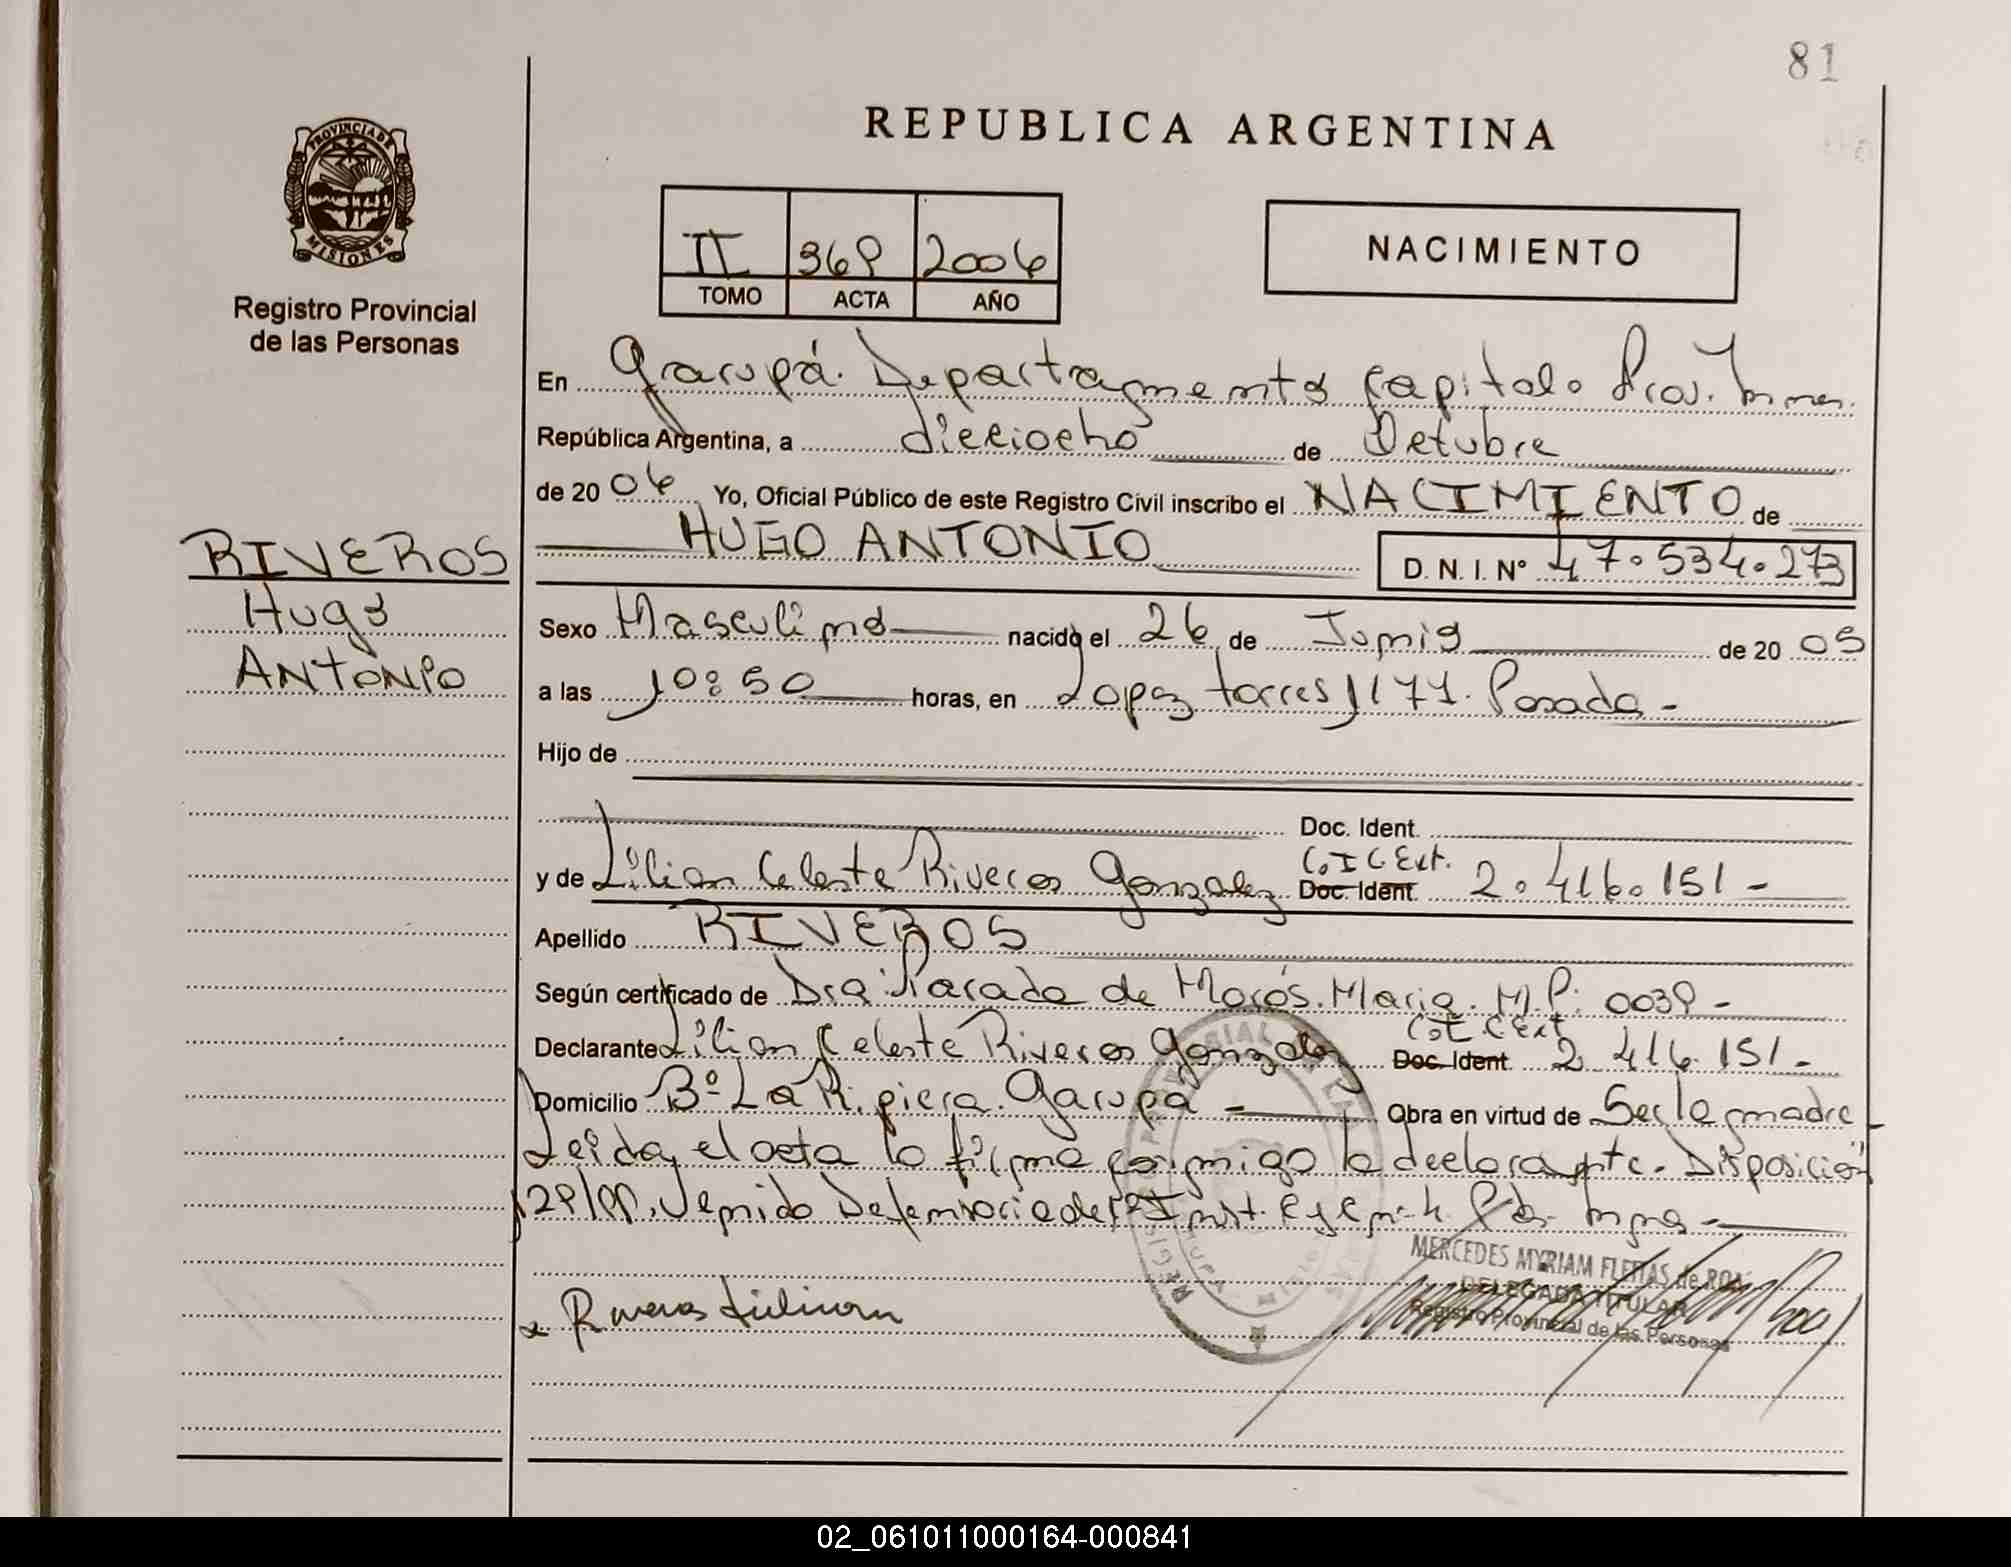 81
REPUBLICA ARGENTINA
PROVINCIA DE
MISIONES
Registro Provincial
de las Personas
II 369 2006
TOMO ACTA AÑO
NACIMIENTO
En Garupá. Departamento Capital. Prov. Mnes.
República Argentina, a dieciocho de Octubre
de 20 06 Yo, Oficial Público de este Registro Civil inscribo el NACIMIENTO de
HUGO ANTONIO D. N. I. N° 47.534.273
RIVEROS
Hugo
ANTONIO
Sexo Masculino nacido el 26 de Junio de 20 05
a las 10:50 horas, en Lopez torres 1177. Posadas -
Hijo de
Doc. Ident.
y de Lilian Celeste Riveros Gonzalez Doc. Ident. C.I C.Ext. 2.416.151 -
Apellido RIVEROS
Según certificado de Dra. Parada de Morós. Maria. M.P: 0039 -
Declarante Lilian Celeste Riveros Gonzalez Doc. Ident. C.I C.Ext 2.416.151 -
Domicilio B° La Ripiera. Garupá - Obra en virtud de Ser la madre -
Leida el acta la firma conmigo la declarante. Disposición
Riveros Lilian
MERCEDES MYRIAM FLEITAS de ROA
DELEGADA TITULAR
Registro Provincial de las Personas
02_061011000164-000841